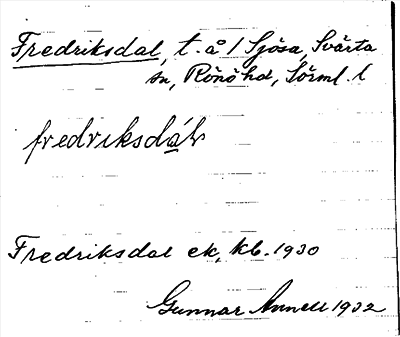 Fredriksdal, t. å / Sjösa, Svärta
sn, Rönö hd, Sörml. l
fredriksdáḷ
Fredriksdal ek, kb. 1930
Gunnar Annell 1932